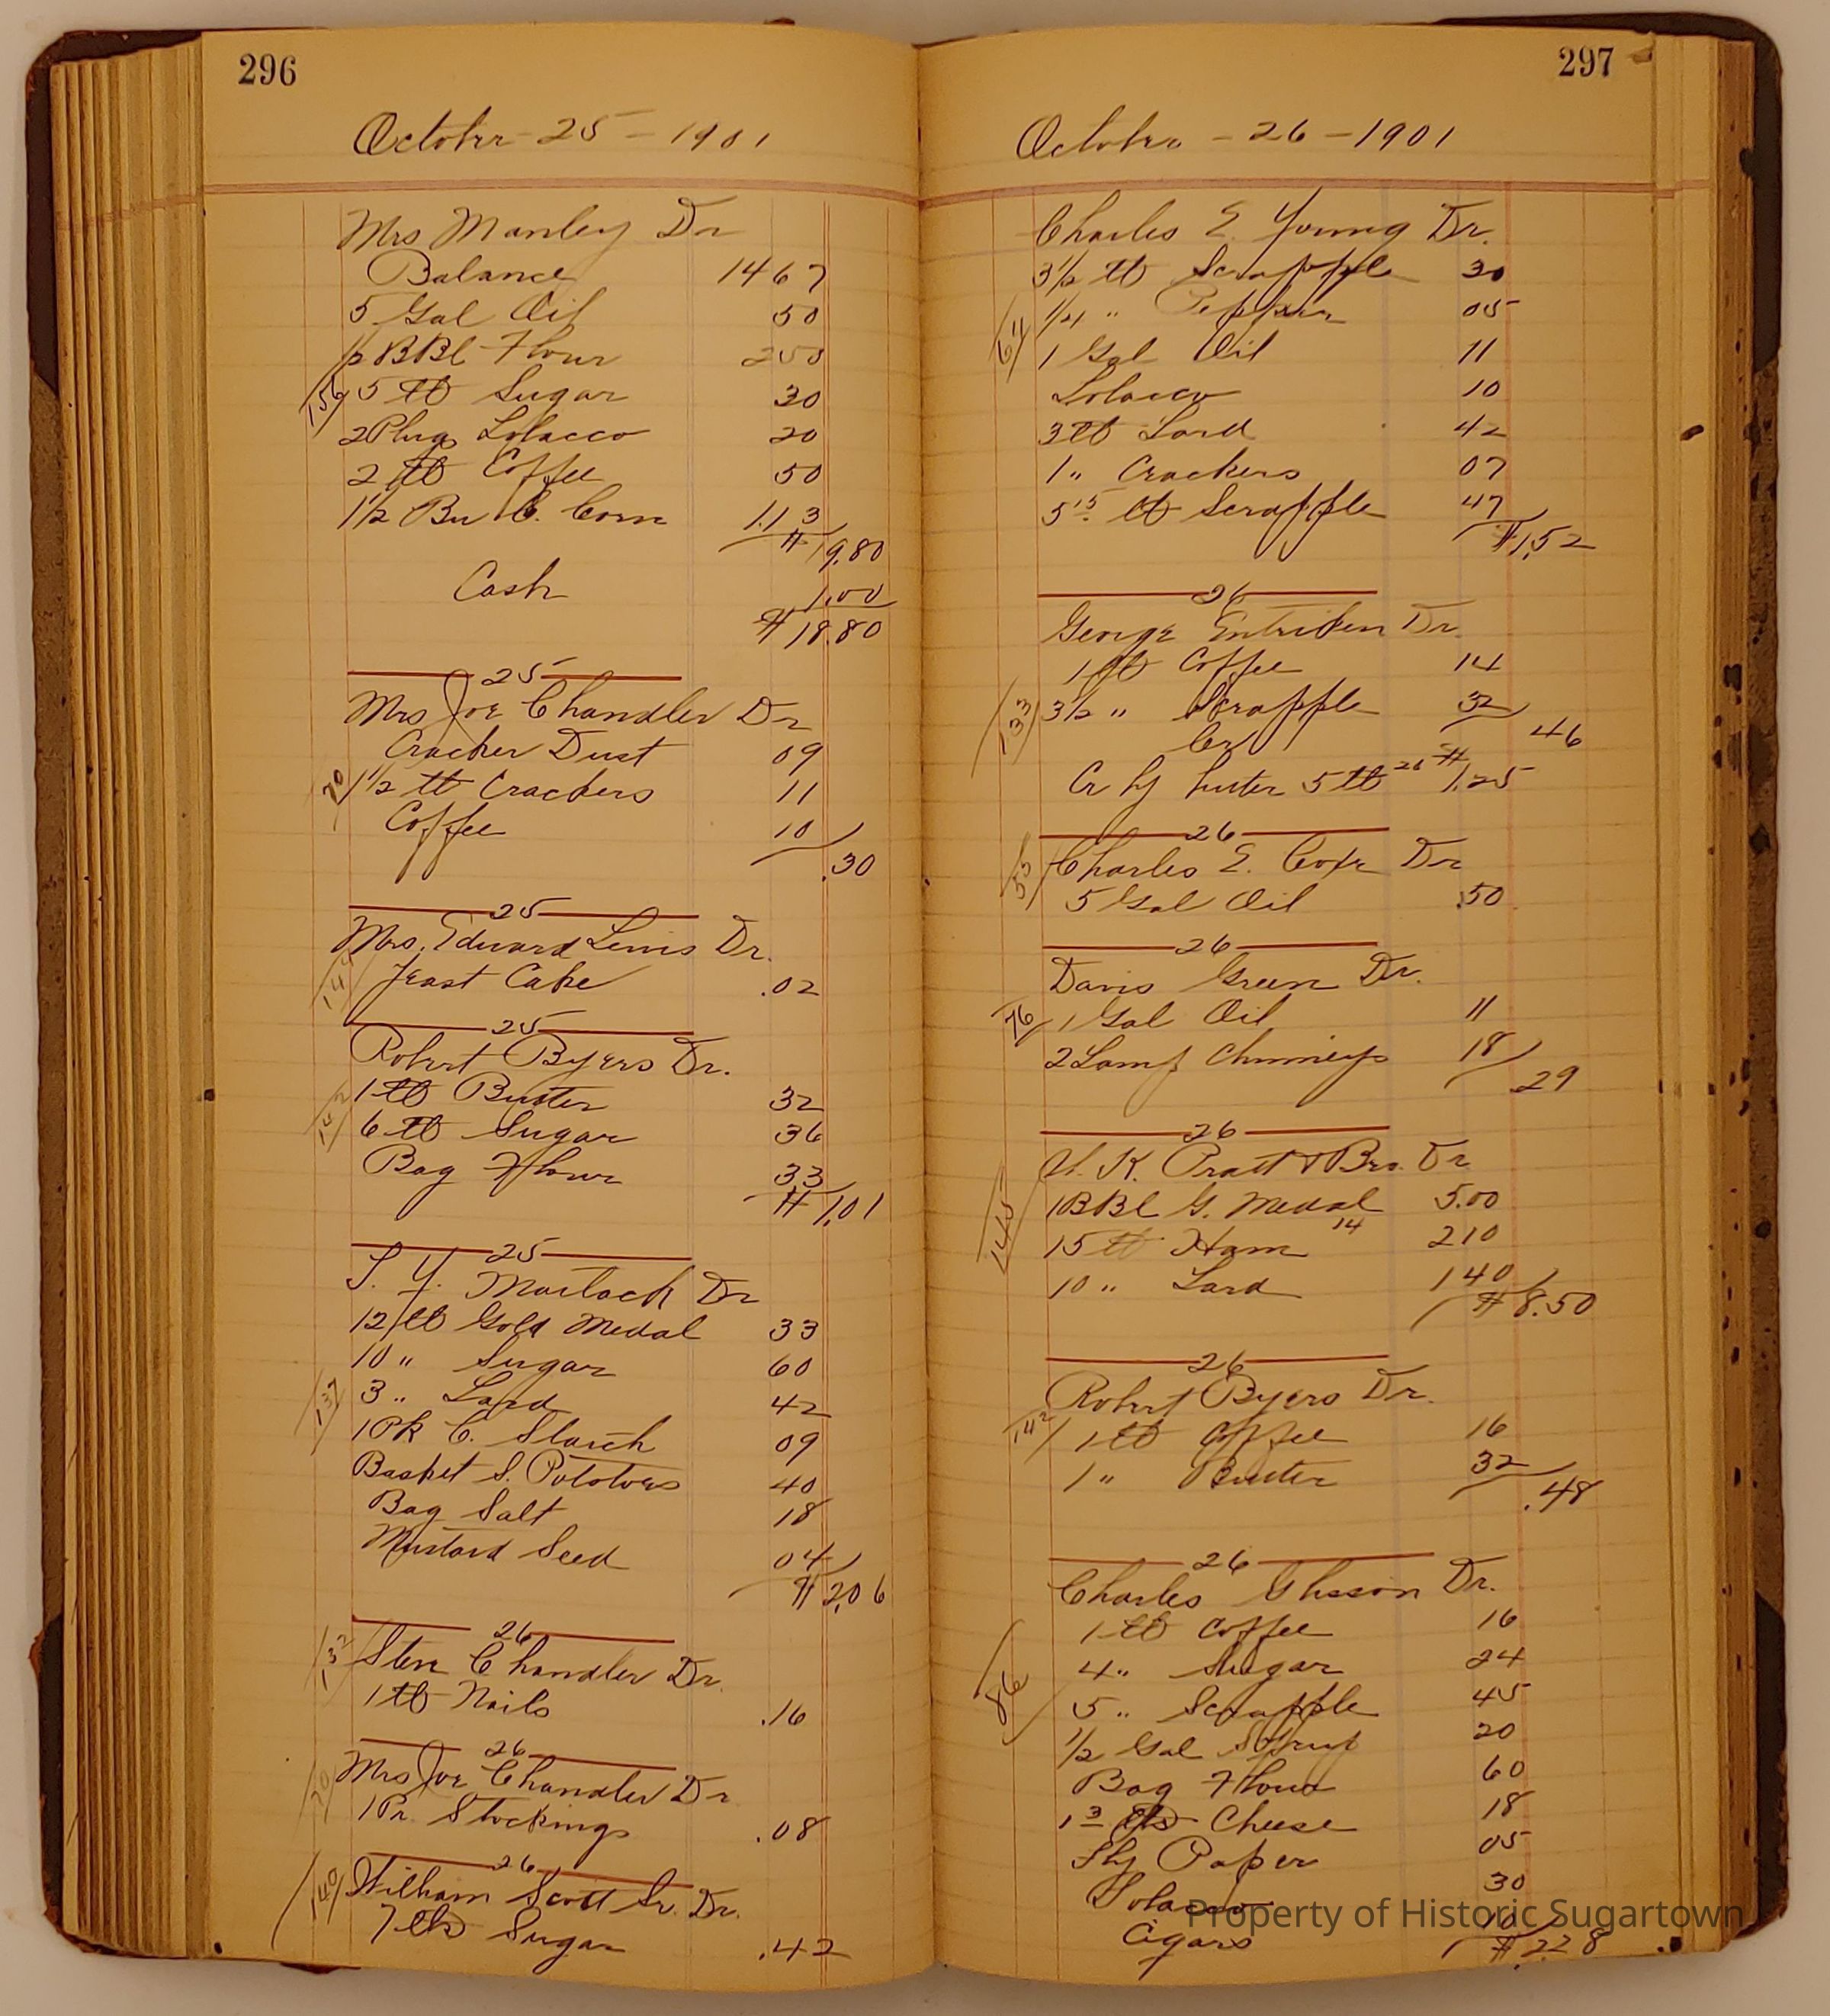 296
October - 25 - 1901
Mrs Manley Dr
Balance 1467
5 Gal Oil 50
1/2 BBl Flour 250
156 5 lb Sugar 30
2 Plugs Tobacco 20
2 lb Coffee 50
1 1/2 Bu C. Corn 1.13
$19.80
Cash 1.00
$18.80
25
Mrs Joe Chandler Dr
Cracker Dust 09
70 1 1/2 lb Crackers 11
Coffee 10
.30
25
Mrs. Edward Lewis Dr.
Yeast Cake .02
25
Robert Byers Dr.
1 lb Butter 32
142 6 lb Sugar 36
Bag Flour 33
$1.01
25
S. Y. Matlack Dr
12 lb Gold Medal 33
10 " Sugar 60
137 3 " Lard 42
1 Pk C. Starch 09
Basket S. Potatoes 40
Bag Salt 18
Mustard Seed 04
$2.06
26
132 Steve Chandler Dr.
1 lb Nails .16
26
70 Mrs Joe Chandler Dr
1 Pr. Stockings .08
26
140 William Scott Sr. Dr.
7 lbs Sugar .42
297
October - 26 - 1901
Charles E. Young Dr.
3 1/2 lb Scrapple 30
64 1/4 " Pepper 05
1 Gal Oil 11
Tobacco 10
3 lb Lard 42
1 " Crackers 07
5 15 lb Scrapple 47
$1.52
26
George Entriken Dr.
1 lb Coffee 14
133 3 1/2 " Scrapple 32
46
Cr
Cr by butter 5 lb $1.25
26
53 Charles E. Cope Dr
5 Gal Oil .50
26
Davis Green Dr.
76 1 Gal Oil 11
2 Lamp Chimneys 18
.29
26
K. Pratt & Bro. Dr
1 BBl G. Medal 5.00
145 15 lb Ham 14 210
10 " Lard 140
$8.50
26
Robert Byers Dr.
142 1 lb Coffee 16
1 " Butter 32
.48
26
Charles Dr.
1 lb Coffee 16
4 " Sugar 24
86 5 " Scrapple 45
1/2 Gal Syrup 20
Bag Flour 60
1 3 lbs Cheese 18
Fly Paper 05
Tobacco 30
Cigars 10
$2.28
Property of Historic Sugartown